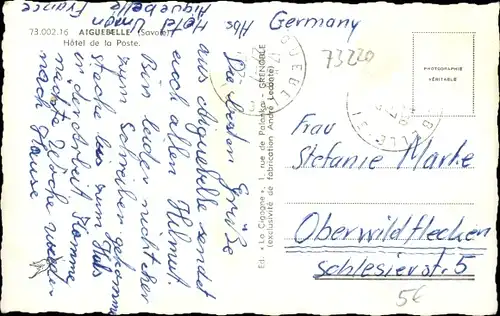 73.002.16 AIGUEBELLE (Savoie)
Hôtel de la Poste.
Abs
Hotel
Aiguebelle
France
Die besten Grüße
aus Aiguebelle sendet
euch allen Helmut
Bin leider nicht eher
zum Schreiben gekommen
stecke bis zum Hals
in der Arbeit Komme
nächste Woche wieder
nach Hause
Ed. « La Cigogne », 1, rue de Palanka - GRENOBLE
(exclusivité de fabrication André Leconte)
Germany
73220
PHOTOGRAPHIE
VÉRITABLE
Frau
Stefanie Marke
Oberwildflecken
Schlesierstr. 5
5€